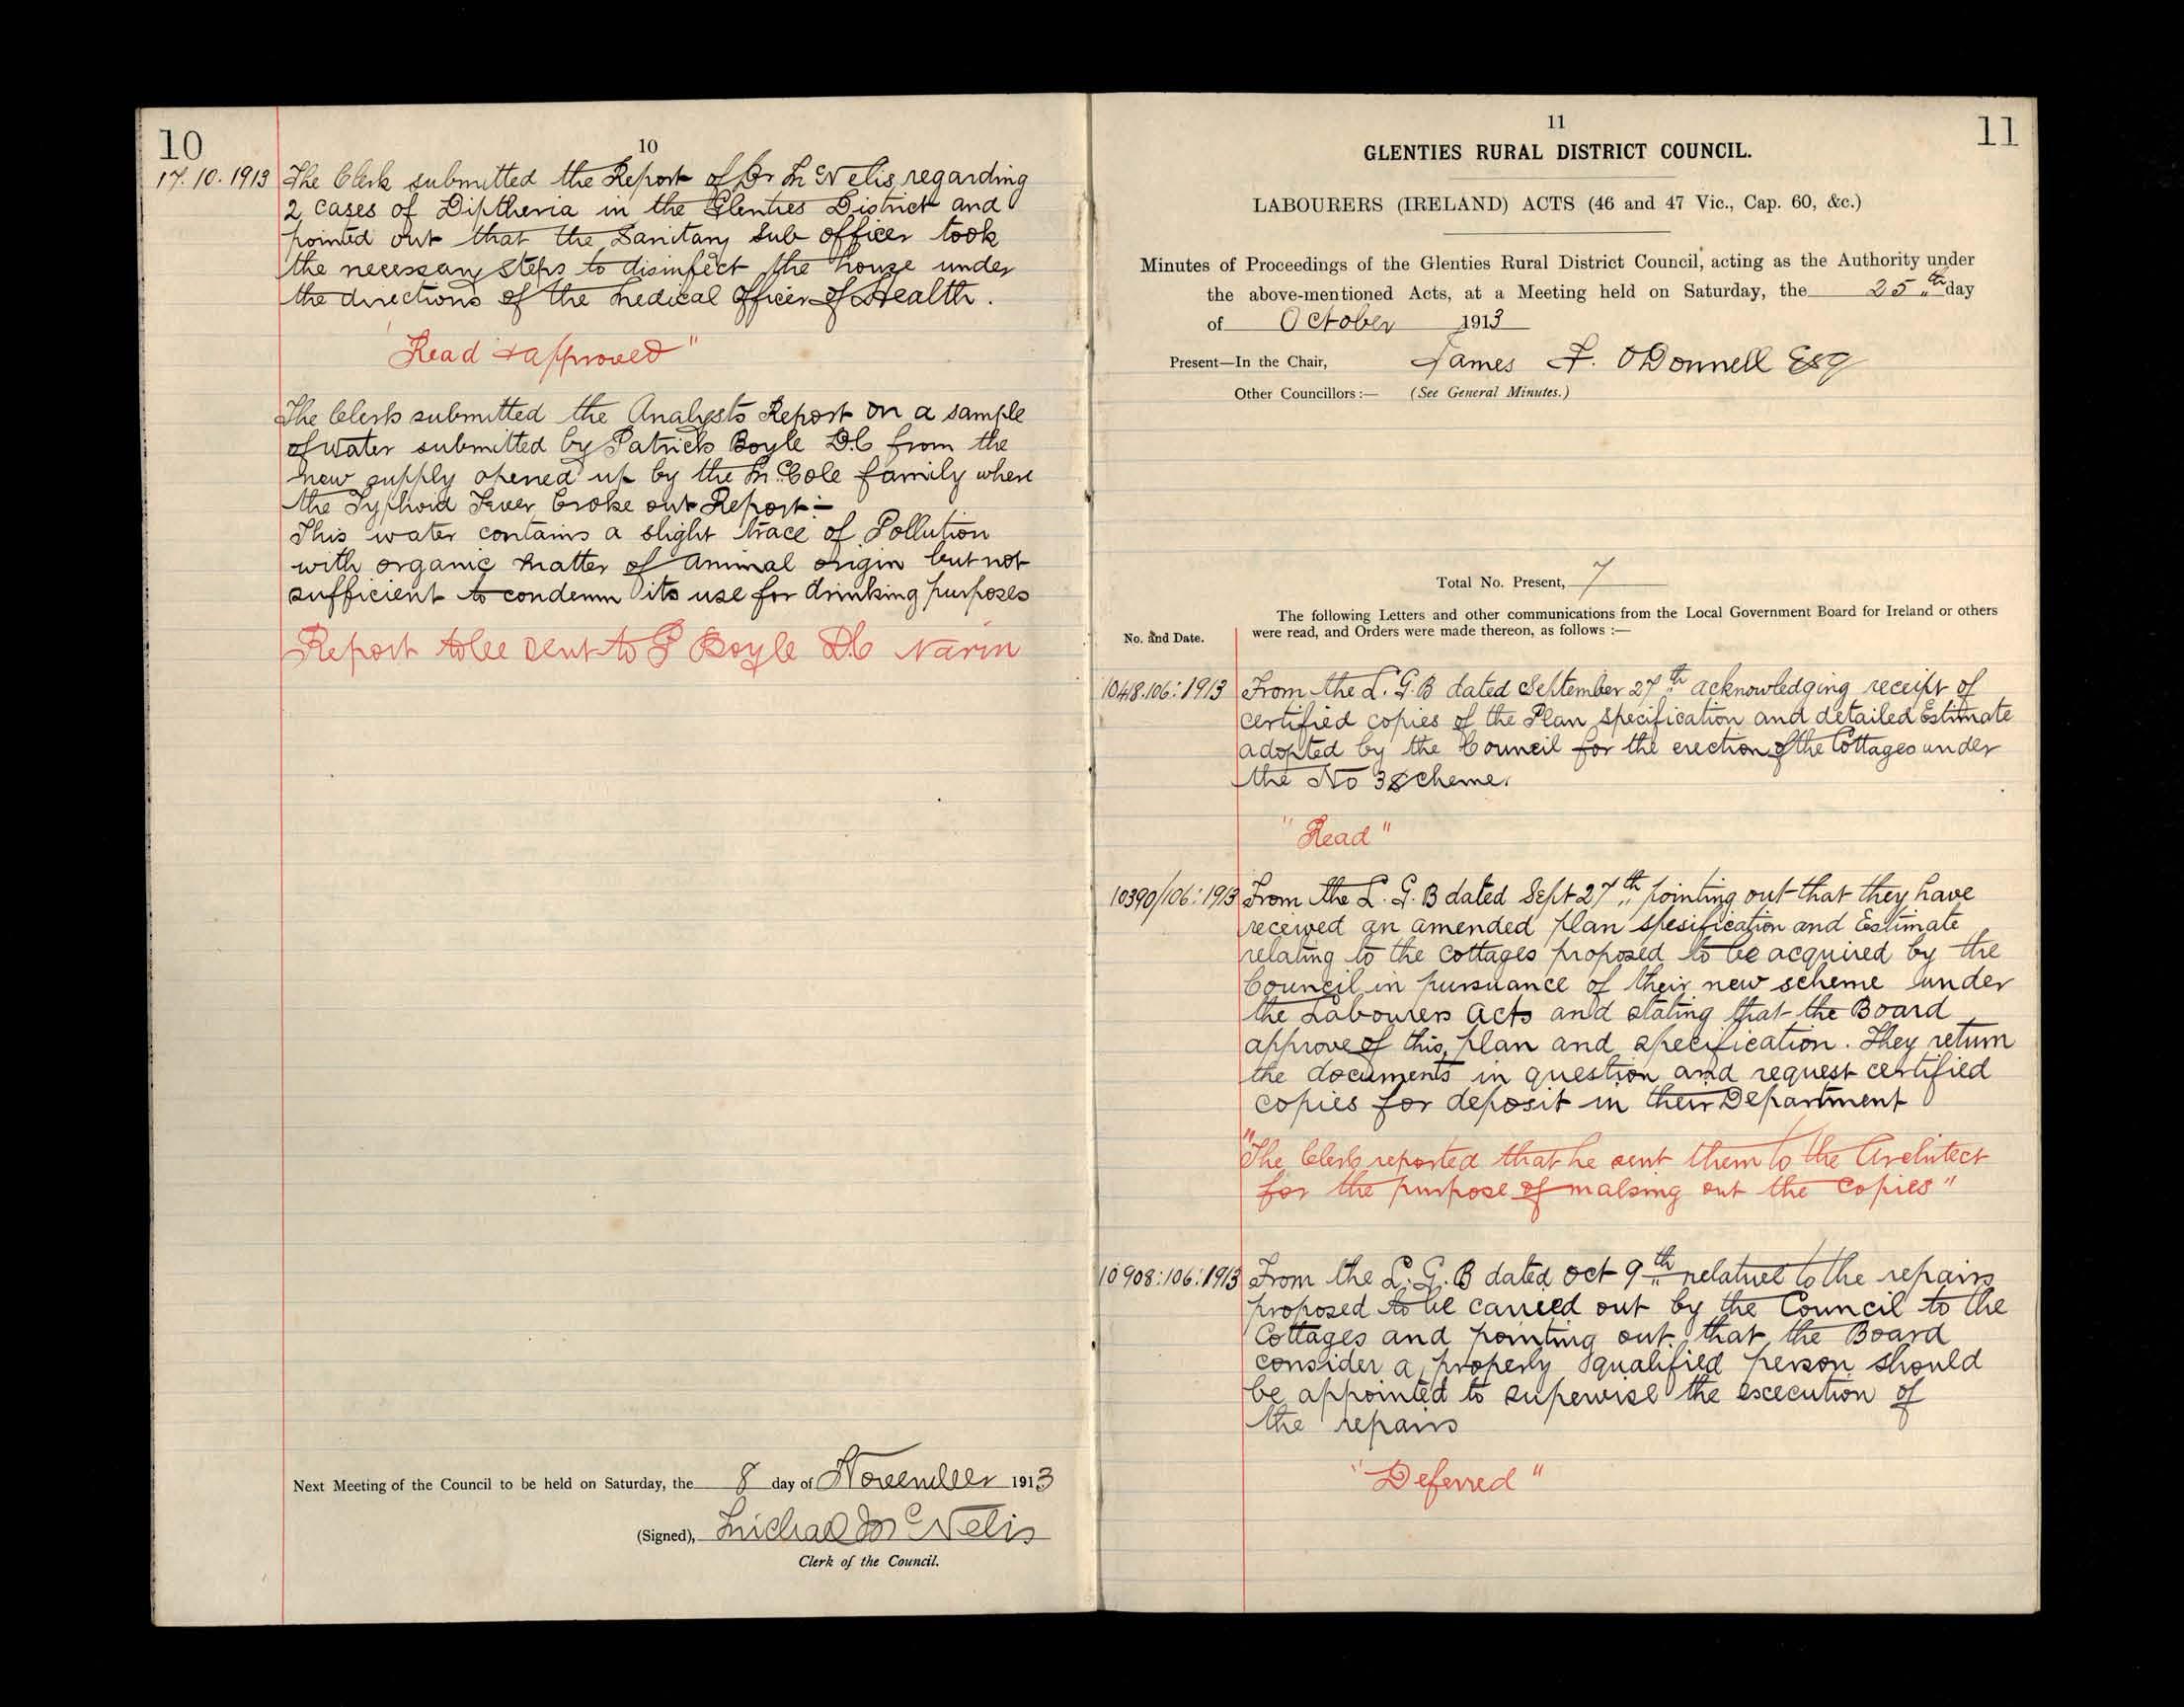 10
10
17.10.1913 The Clerk submitted the Report of Dr McNelis regarding
2 cases of Diptheria in the Glenties District and
pointed out that the Sanitary Sub officer took
the necessary steps to disinfect the house under
the directions of the Medical Officer of Health.
"Read & approved"
The Clerk submitted the Analysts Report on a sample
of water submitted by Patrick Boyle D.C from the
new supply opened up by the McCole family where
the Typhoid Fever broke out Report:-
This water contains a slight trace of Pollution
with organic matter of animal origin but not
sufficient to condemn its use for drinking purposes
Report to be sent to P Boyle D.C Narin
Next Meeting of the Council to be held on Saturday, the 8 day of November 1913
(Signed), Michael McNelis
Clerk of the Council.
11
11
GLENTIES RURAL DISTRICT COUNCIL.
LABOURERS (IRELAND) ACTS (46 and 47 Vic., Cap. 60, &c.)
Minutes of Proceedings of the Glenties Rural District Council, acting as the Authority under
the above-mentioned Acts, at a Meeting held on Saturday, the 25th day
of October 1913
Present—In the Chair, James F. O'Donnell Esq
Other Councillors:— (See General Minutes.)
Total No. Present, 7
The following Letters and other communications from the Local Government Board for Ireland or others
No. and Date. were read, and Orders were made thereon, as follows:—
1048.106:1913 From the L.G.B dated September 27th acknowledging receipt of
certified copies of the Plan specification and detailed Estimate
adopted by the Council for the erection of the Cottages under
the No 3 Scheme.
"Read"
10390/106:1913 From the L.G.B dated Sept 27th pointing out that they have
received an amended plan spesification and Estimate
relating to the cottages proposed to be acquired by the
Council in pursuance of their new scheme under
the Labourers Acts and stating that the Board
approve of this plan and specification. They return
the documents in question and request certified
copies for deposit in their Department
"The Clerk reported that he sent them to the Architect
for the purpose of making out the copies"
10908:106:1913 From the L.G.B dated Oct 9th relative to the repairs
proposed to be carried out by the Council to the
Cottages and pointing out that the Board
consider a properly qualified person should
be appointed to supervise the execution of
the repairs
"Deferred"